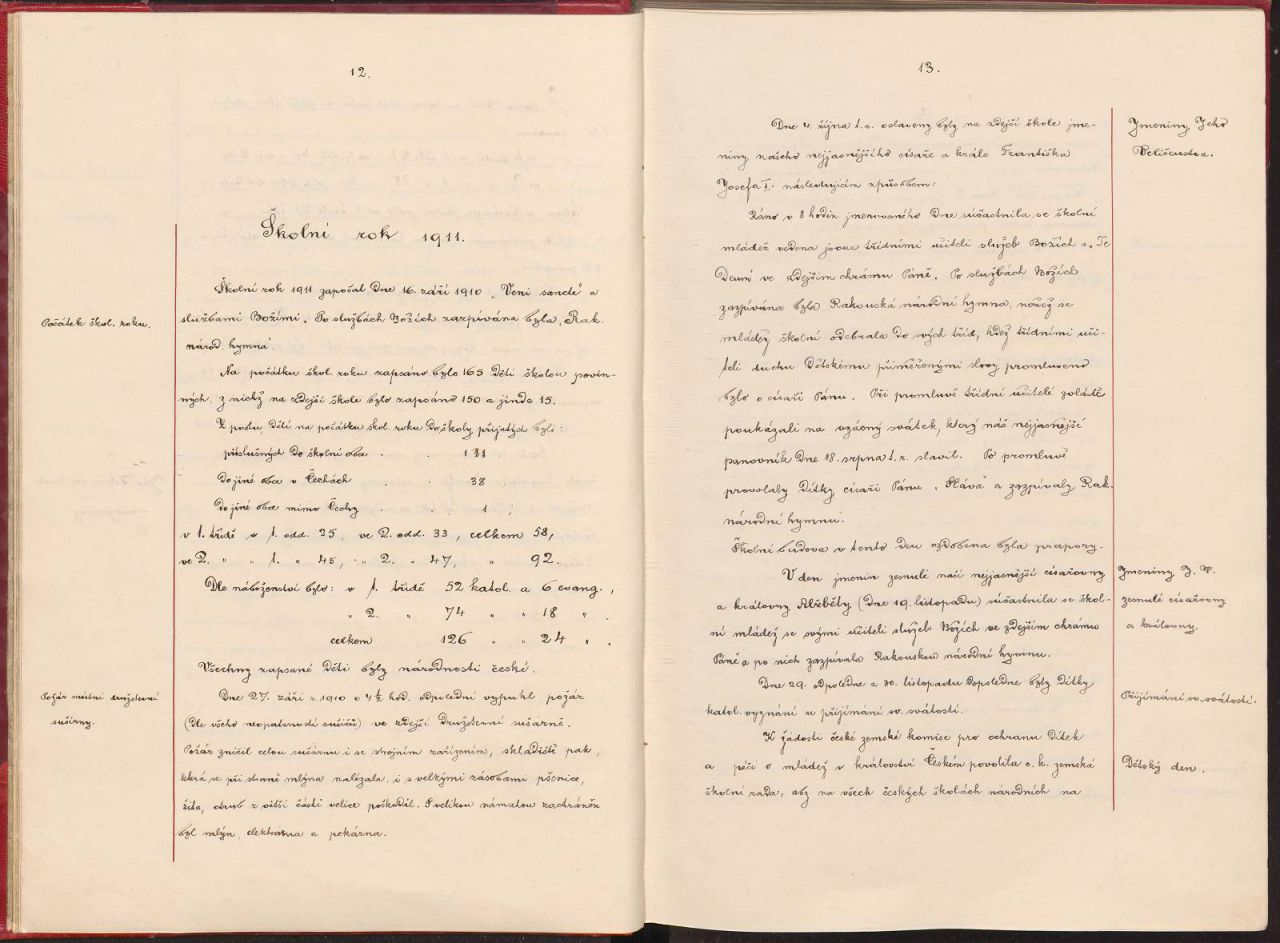 12.
Školní rok 1911.
Počátek škol. roku.
Školní rok 1911 započat dne 16. září 1910 „Veni sancte“ a
službami Božími. Po službách Božích zazpívána byla „Rak.
národ. hymna“
Na počátku škol. roku zapsáno bylo 165 dětí školou povin-
ných, z nichž na zdejší škole bylo zapsáno 150 a jinde 15.
Z počtu dětí na počátku škol. roku do školy přijatých bylo:
příslušných do školní obce . . 111
do jiné obce v Čechách . . 38
do jiné obce mimo Čechy . . 1.
v 1. třídě v 1. odd. 25, ve 2. odd. 33, celkem 58,
ve 2. „ „ 1. „ 45, „ 2. „ 47, „ 92.
Dle náboženství bylo: v 1. třídě 52 katol. a 6 evang.,
„ 2. „ 74 „ „ 18 „ .
celkem 126 „ „ 24 „ .
Všechny zapsané děti byly národnosti české.
Požár místní družstevní
sušárny.
Dne 27. září r. 1910 o 4½ hod. odpolední vypukl požár
(dle všeho neopatrností sušičů) ve zdejší družstevní sušárně.
Požár zničil celou sušárnu i se strojním zařízením, skladiště pak,
které se při straně mlýna nalézalo, i s velkými zásobami pšenice,
žita, otrub z větší části velice poškodil. S velikou námahou zachráněn
byl mlýn, elektrárna a pekárna.
13.
Dne 4. října t. r. oslaveny byly na zdejší škole jme-
niny našeho nejjasnějšího císaře a krále Františka
Josefa I. následujícím způsobem:
Jmeniny Jeho
Veličenstva.
Ráno v 8 hodin jmenovaného dne súčastnila se školní
mládež vedena jsouc třídními učiteli služeb Božích s „Te
Deum“ ve zdejším chrámu Páně. Po službách Božích
zazpívána byla Rakouská národní hymna, načež se
mládež školní odebrala do svých tříd, kdež třídními uči-
teli duchu dětskému přiměřenými slovy promluveno
bylo o císaři Pánu. Při promluvě třídní učitelé zvláště
poukázali na vzácný svátek, který náš nejjasnější
panovník dne 18. srpna t. r. slavil. Po promluvě
provolaly dítky císaři Pánu „Sláva“ a zazpívaly Rak.
národní hymnu.
Školní budova v tento den ozdobena byla prapory.
V den jmenin zesnulé naší nejjasnější císařovny
a královny Alžběty (dne 19. listopadu) súčastnila se škol-
ní mládež se svými učiteli služeb Božích ve zdejším chrámu
Páně a po nich zazpívala Rakouskou národní hymnu.
Jmeniny J. V.
zesnulé císařovny
a královny.
Dne 29. odpoledne a 30. listopadu dopoledne byly dítky
katol. vyznání u přijímání sv. svátostí.
Přijímání sv. svátostí.
K žádosti české zemské komise pro ochranu dítek
a péči o mládež v království Českém povolila c. k. zemská
školní rada, aby na všech českých školách národních na
Dětský den.